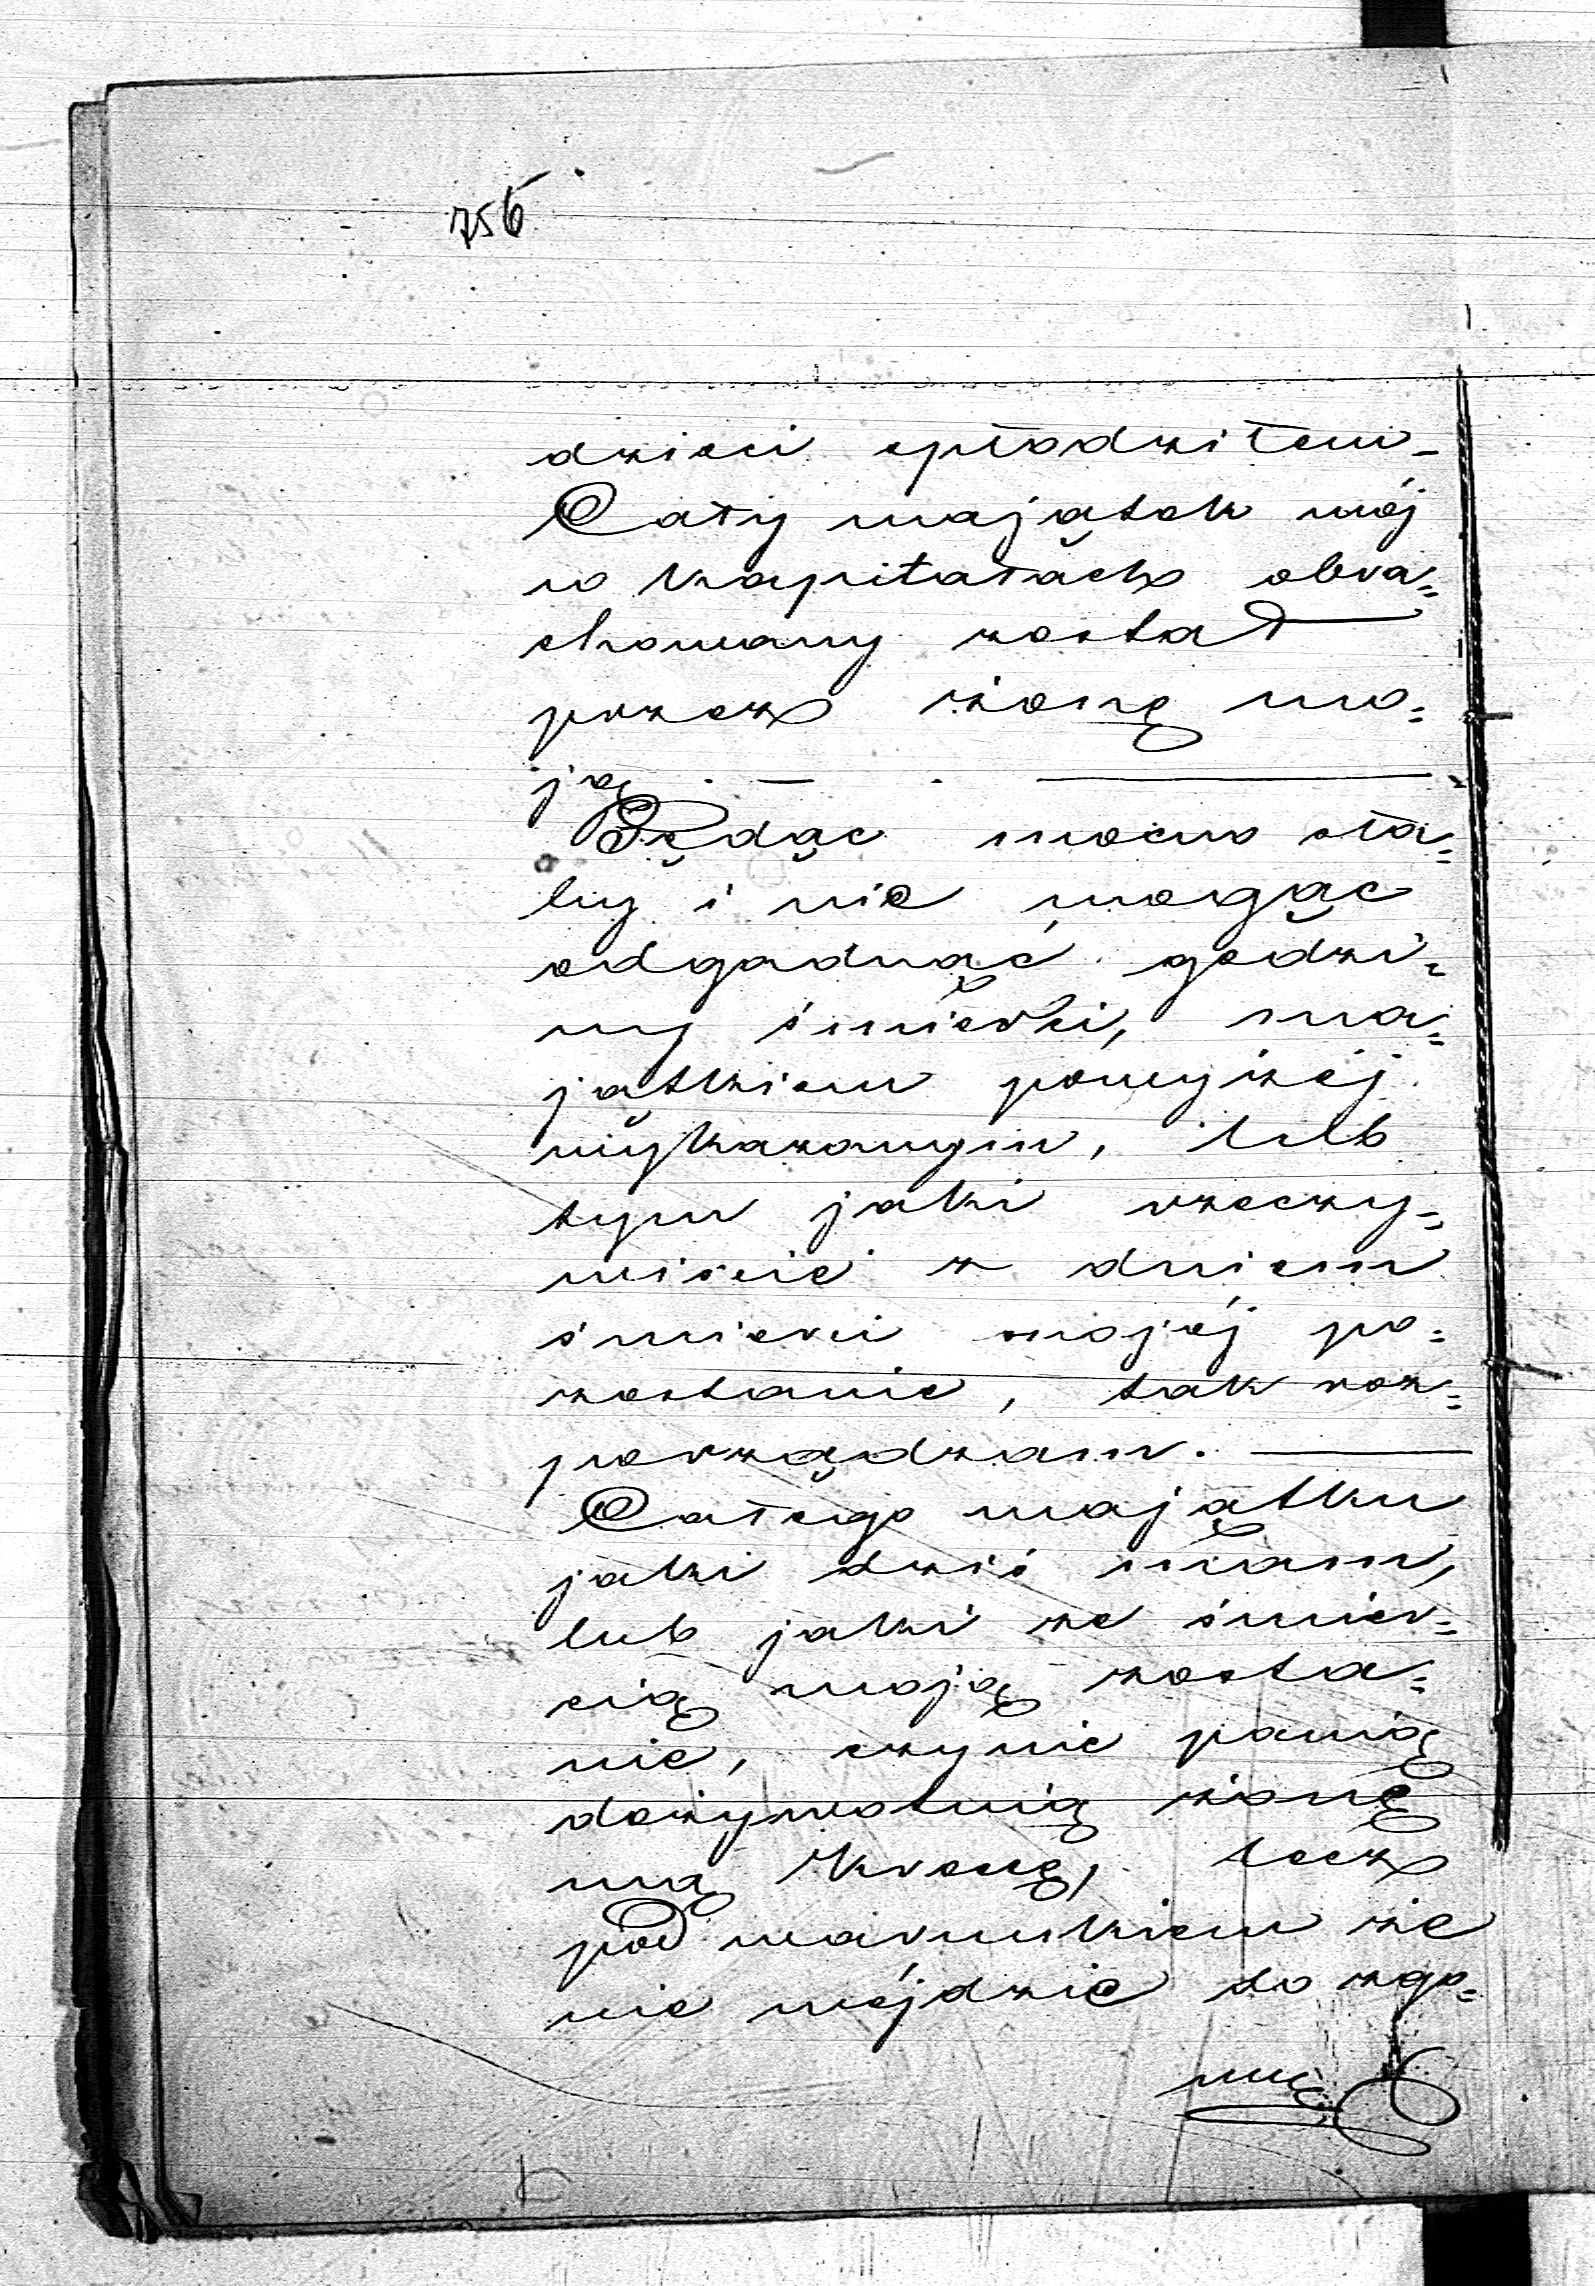 756
dzieci spłodziłem –
Cały majątek mój
w kapitałach obra=
chowany został
przez żonę mo=
ją . — . ———
Będąc mocno sła=
by i nie mogąc
odgadnąć godzi=
ny śmierci, ma=
jątkiem powyżéj
wykazanym, lub
tym jaki rzeczy=
wiście z dniem
śmierci mojéj po=
zostanie, tak roz=
porządzam. ———
Całego majątku
jaki dziś mam,
lub jaki ze śmier=
cią moją zosta=
nie, czynię panią
dożywotnią żonę
mą , lecz
pod warunkiem że
nie wejdzie do zgo=